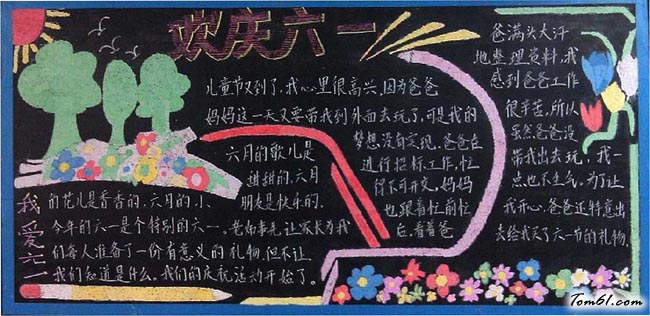 欢庆六一
儿童节又到了,我心里很高兴,因为爸爸
妈妈这一天又要带我到外面去玩了,可是我的
梦想没有实现。爸爸在
进行招标工作,忙
得不可开交。妈妈
也跟着忙前忙
后,看着爸
爸满头大汗
地整理资料,我
感到爸爸工作
很辛苦,所以
虽然爸爸没
带我出去玩,我一
点也不生气。为了让
我开心,爸爸还特意出
去给我买了六一节的礼物。
我爱六一
六月的歌儿是
甜甜的,六月
的花儿是香香的,六月的小
朋友是快乐的。
今年的六一是个特别的六一。老师事先让家长为我
们每人准备了一份有意义的礼物,但不让
我们知道是什么。我们的庆祝活动开始了。
Tom61.com